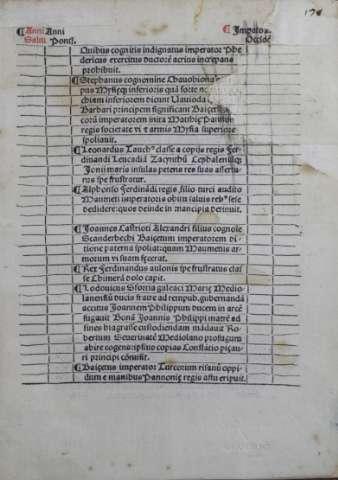 Anni Anni Impator.
Salu. Pont. Occidē.
Quibus cognitis indignatus imperator Phe
dericus exercitus ductorē acrius increpans
prohibuit.
Stephanus cognomine
pus Mysieq; inferioris quā
chiam inferiorem dicunt Vauioda
Barbari principem significant Baizetū
corū imperatorem inita Mathie Pannon
regis societate vi & armis Mysiā superiorē
spoliauit.
Leonardus classe a copijs regis Fer
dinandi Leucadiā Zacynthū Cephaleniāq;
Jonij maris insulas petens res suas afferu
rus spe frustratur.
Alphonso Ferdinādi regis filio turci audito
Maumeti imperatoris obitu saluis reb⁹ sese
dedidere: quos deinde in mancipia detinuit.
Joannes Castrioti Alexandri filius cognole
Scanderbechi Baizetum imperatorem di
tione paterna spoliat: quam Maumetis ar
morum vi suam fecerat.
Rex Ferdinandus aulonis spe frustratus clas
se Chimerā dolo capit.
Lodouicus Sfortia galeaci Marie Medio
lanensiū ducis frater ad rempub. gubernandā
accitus Joannem Philippum ducem in arcē
fugauit Bonā Joannis Philippi matrē ad
fines biagrasse custodiendam mādauit Ro
bertum Seuerinatē Mediolano profugum
abire cogens: ipsius copias Constātio pisau
ri principi cōmisit.
Baizetus imperator Turcorum risanū oppi
dum e manibus Pannonie regis astu eripuit.